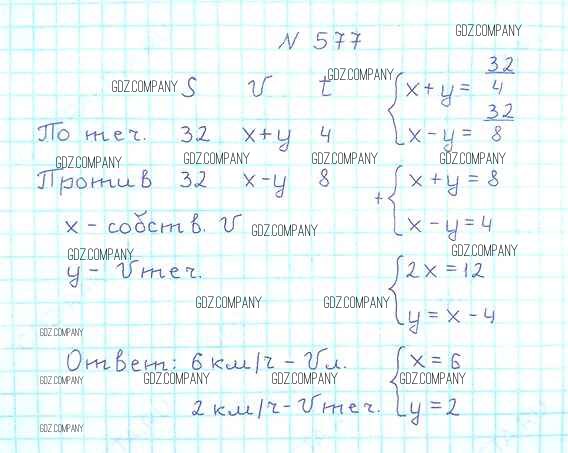 N 577
GDZ.COMPANY
GDZ.COMPANY S V t GDZ.COMPANY
По теч. 32 x+y 4
GDZ.COMPANY GDZ.COMPANY GDZ.COMPANY GDZ.COMPANY
Против 32 x-y 8
x - собств. V GDZ.COMPANY
GDZ.COMPANY
y - Vтеч.
GDZ.COMPANY GDZ.COMPANY
GDZ.COMPANY
Ответ: 6 км/ч - Vл.
GDZ.COMPANY GDZ.COMPANY GDZ.COMPANY GDZ.COMPANY
2 км/ч - Vтеч.
GDZ.COMPANY
x+y = 32/4
x-y = 32/8
+ x+y = 8
x-y = 4
GDZ.COMPANY
2x = 12
y = x - 4
x = 6
y = 2